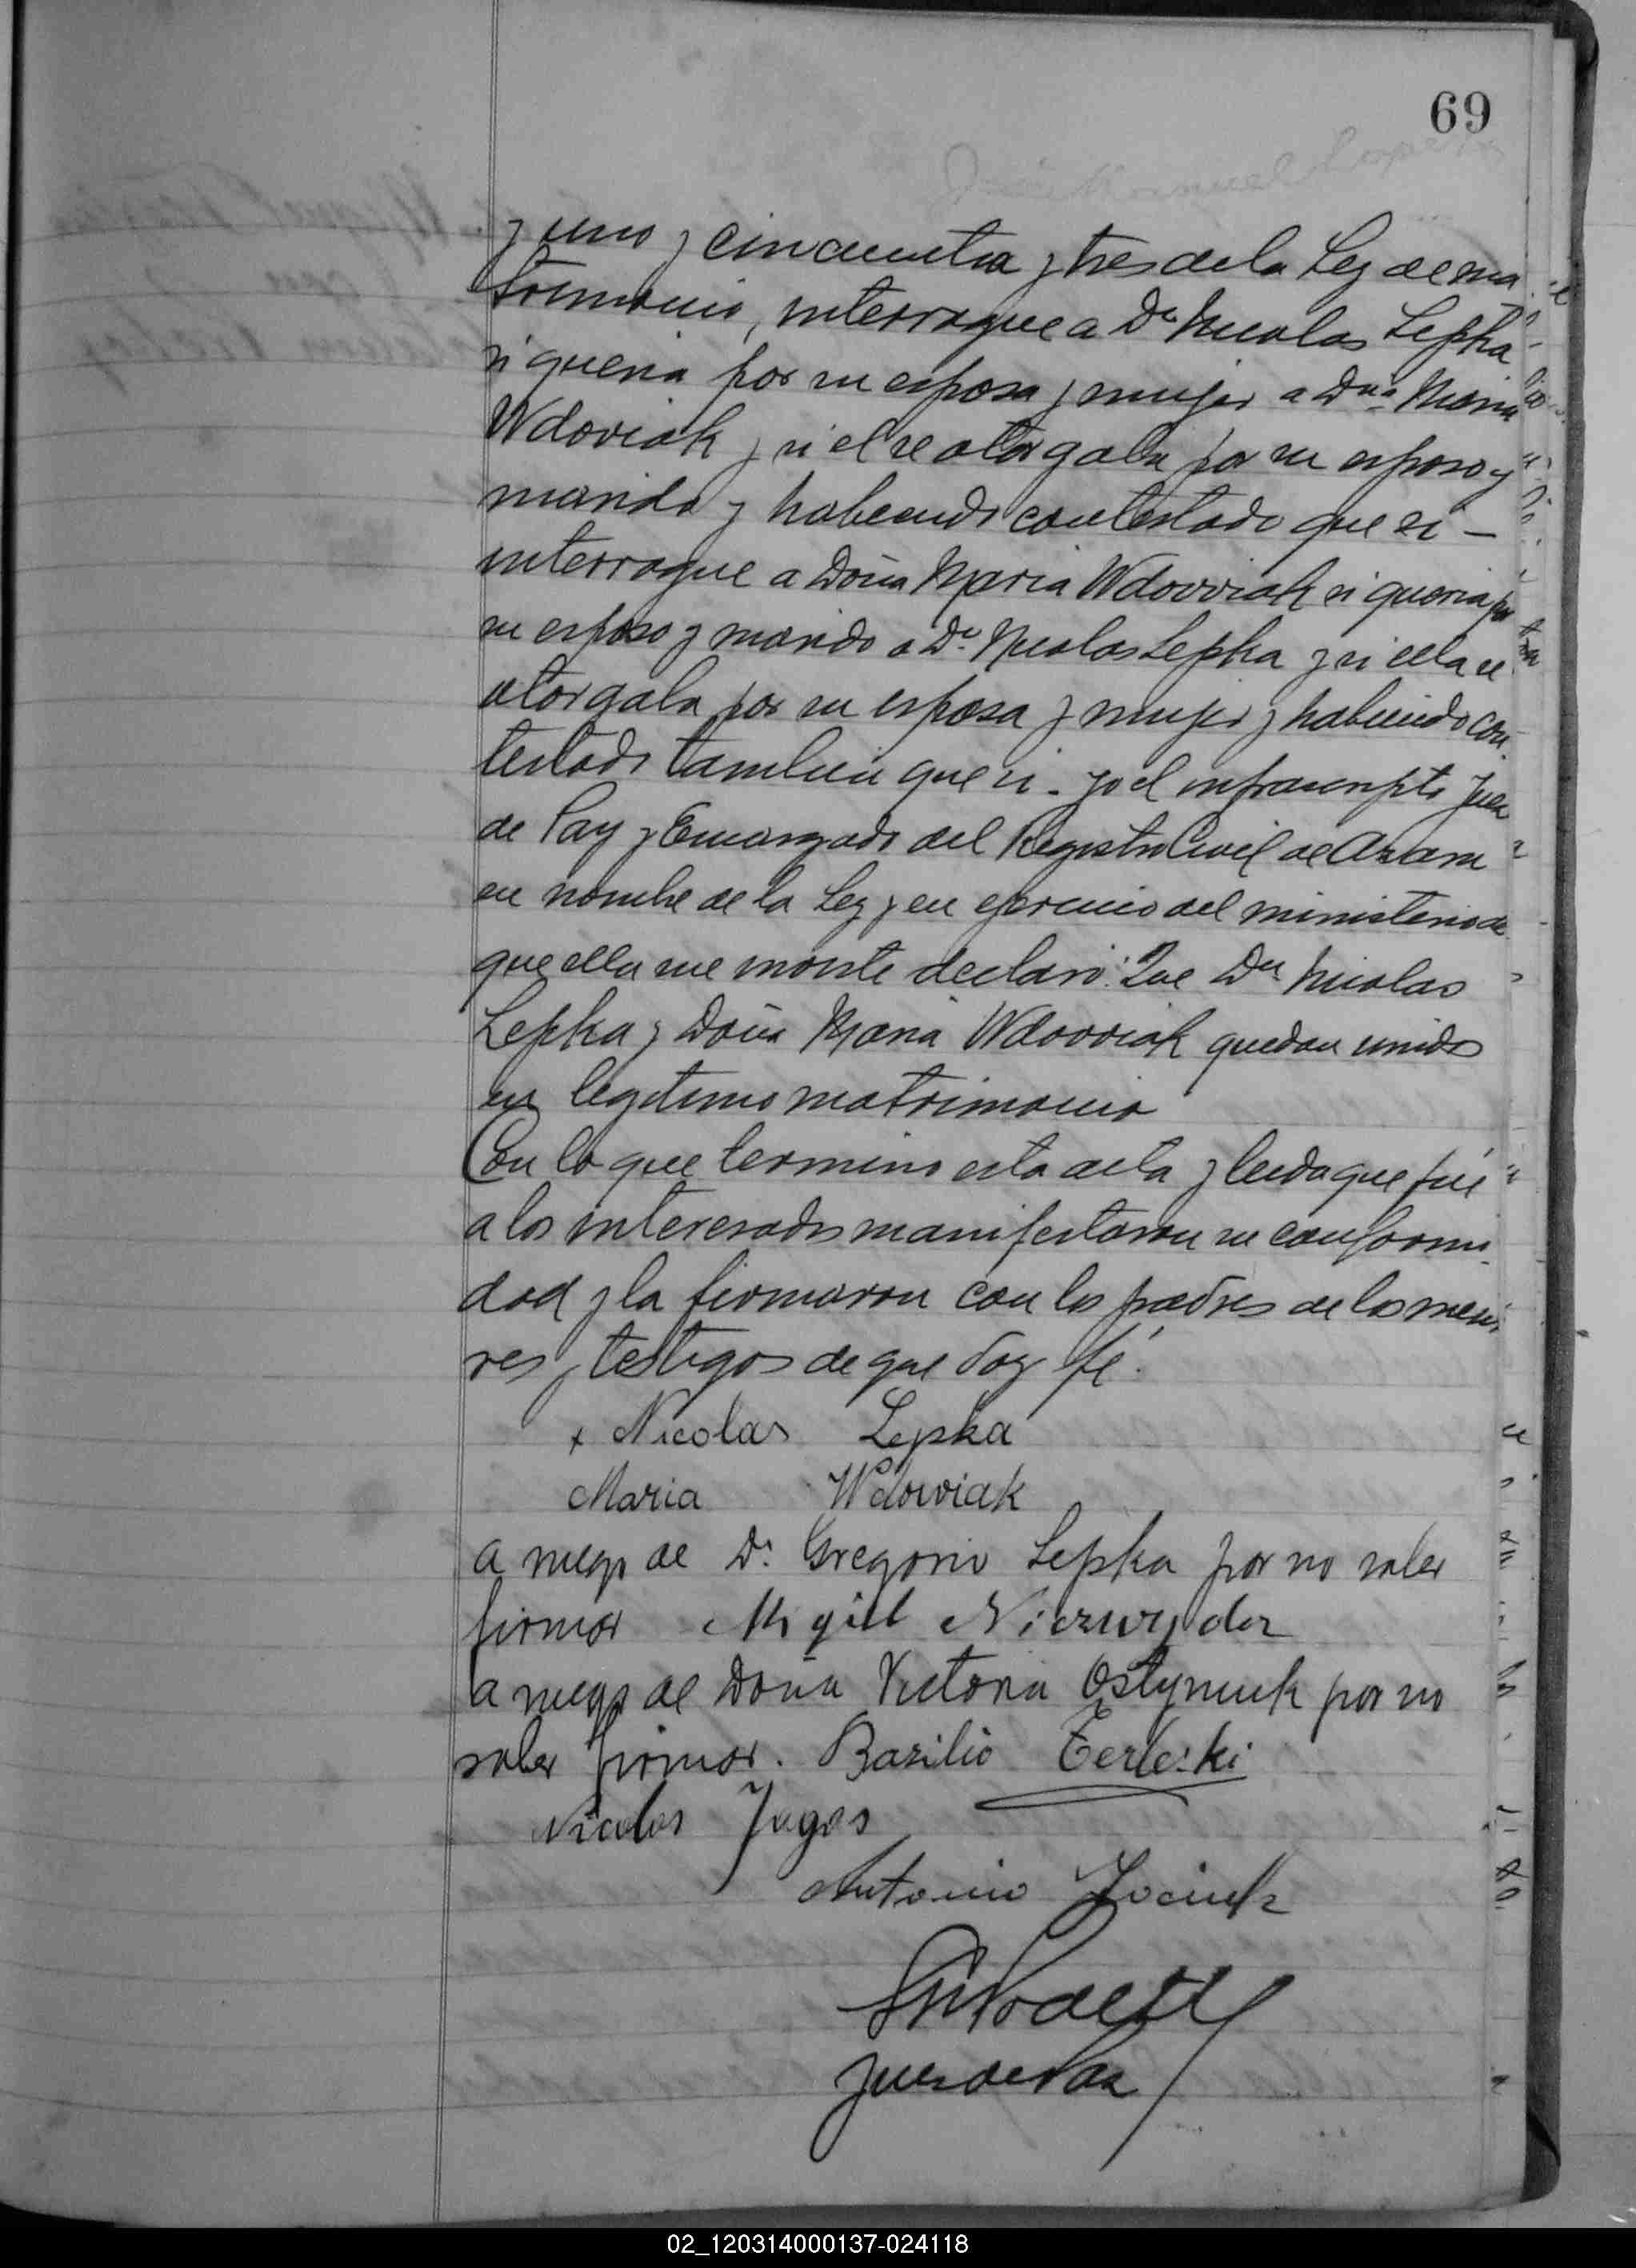 69
y uno y cincuenta y tres de la Ley de ma
trimonio, interrogue a Dn Nicolas Lepka
si queria por su esposa y mujer a Dña Maria
Wdoviak y si el se otorgaba por su esposo y
marido y habiendo contestado que si —
interrogue a Doña Maria Wdowiak si queria por
su esposo y marido a Dn Nicolas Lepka y si ella se
otorgaba por su esposa y mujer y habiendo con
testado tambien que si - yo el infrascripto Juez
de Paz y Encargado del Registro Civil de Azara
en nombre de la Ley y en ejercicio del ministerio de
que ella me declaró: Que Dn Nicolas
Lepka y Doña Maria Wdowiak quedan unidos
en legitimo matrimonio
Con lo que termino esta acta y leida que fué
a los interesados manifestaron su conformi
dad y la firmaron con los padres de los meno
res y testigos de que doy fé.
x Nicolas Lepka
Maria Wdowiak
a ruego de Dn Gregorio Lepka por no saber
firmar
a ruego de Doña Victoria por no
saber firmar. Basilio Terleski
Nicolas
Antonio
Juez de Paz
02_120314000137-024118